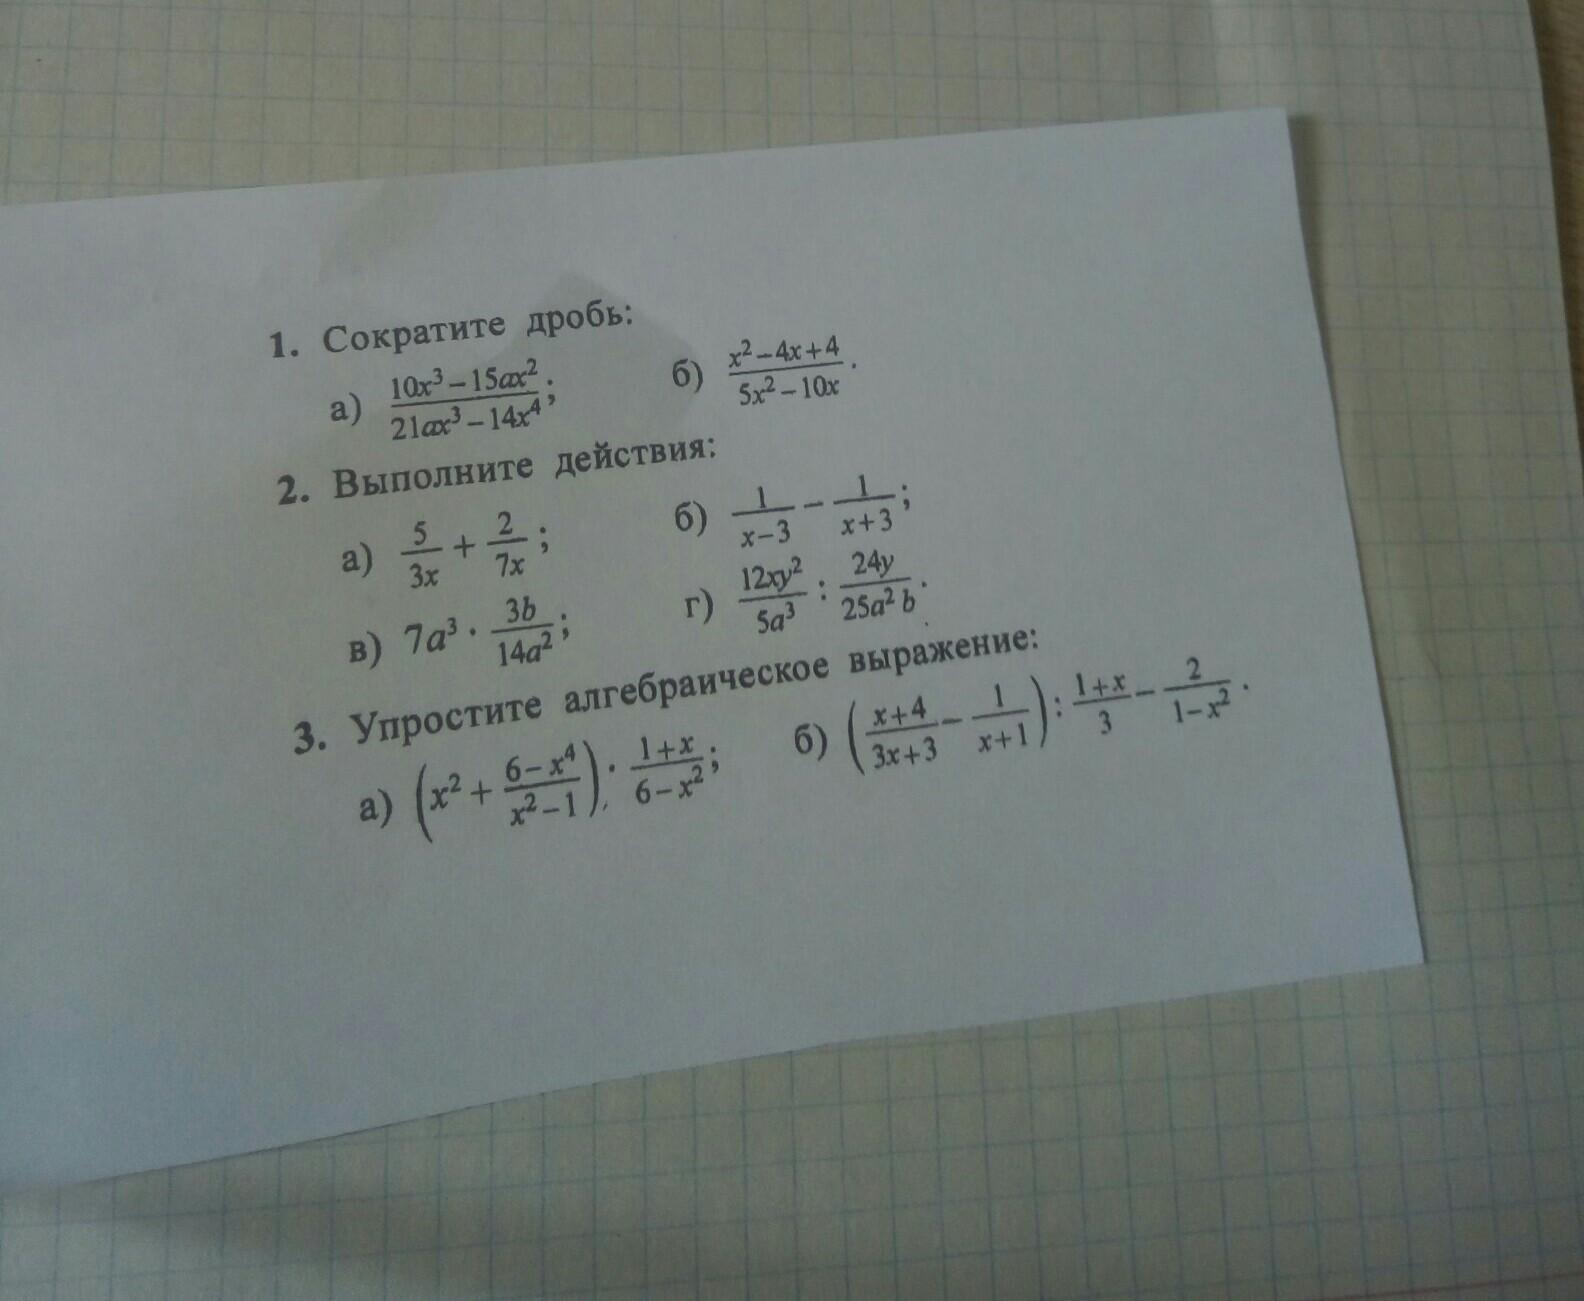 1. Сократите дробь:
а) \frac{10x^3-15ax^2}{21ax^3-14x^4}; б) \frac{x^2-4x+4}{5x^2-10x}.
2. Выполните действия:
а) \frac{5}{3x} + \frac{2}{7x}; б) \frac{1}{x-3} - \frac{1}{x+3};
в) 7a^3 · \frac{3b}{14a^2}; г) \frac{12xy^2}{5a^3} : \frac{24y}{25a^2b}.
3. Упростите алгебраическое выражение:
а) (x^2 + \frac{6-x^4}{x^2-1}) · \frac{1+x}{6-x^2}; б) (\frac{x+4}{3x+3} - \frac{1}{x+1}) : \frac{1+x}{3} - \frac{2}{1-x^2}.